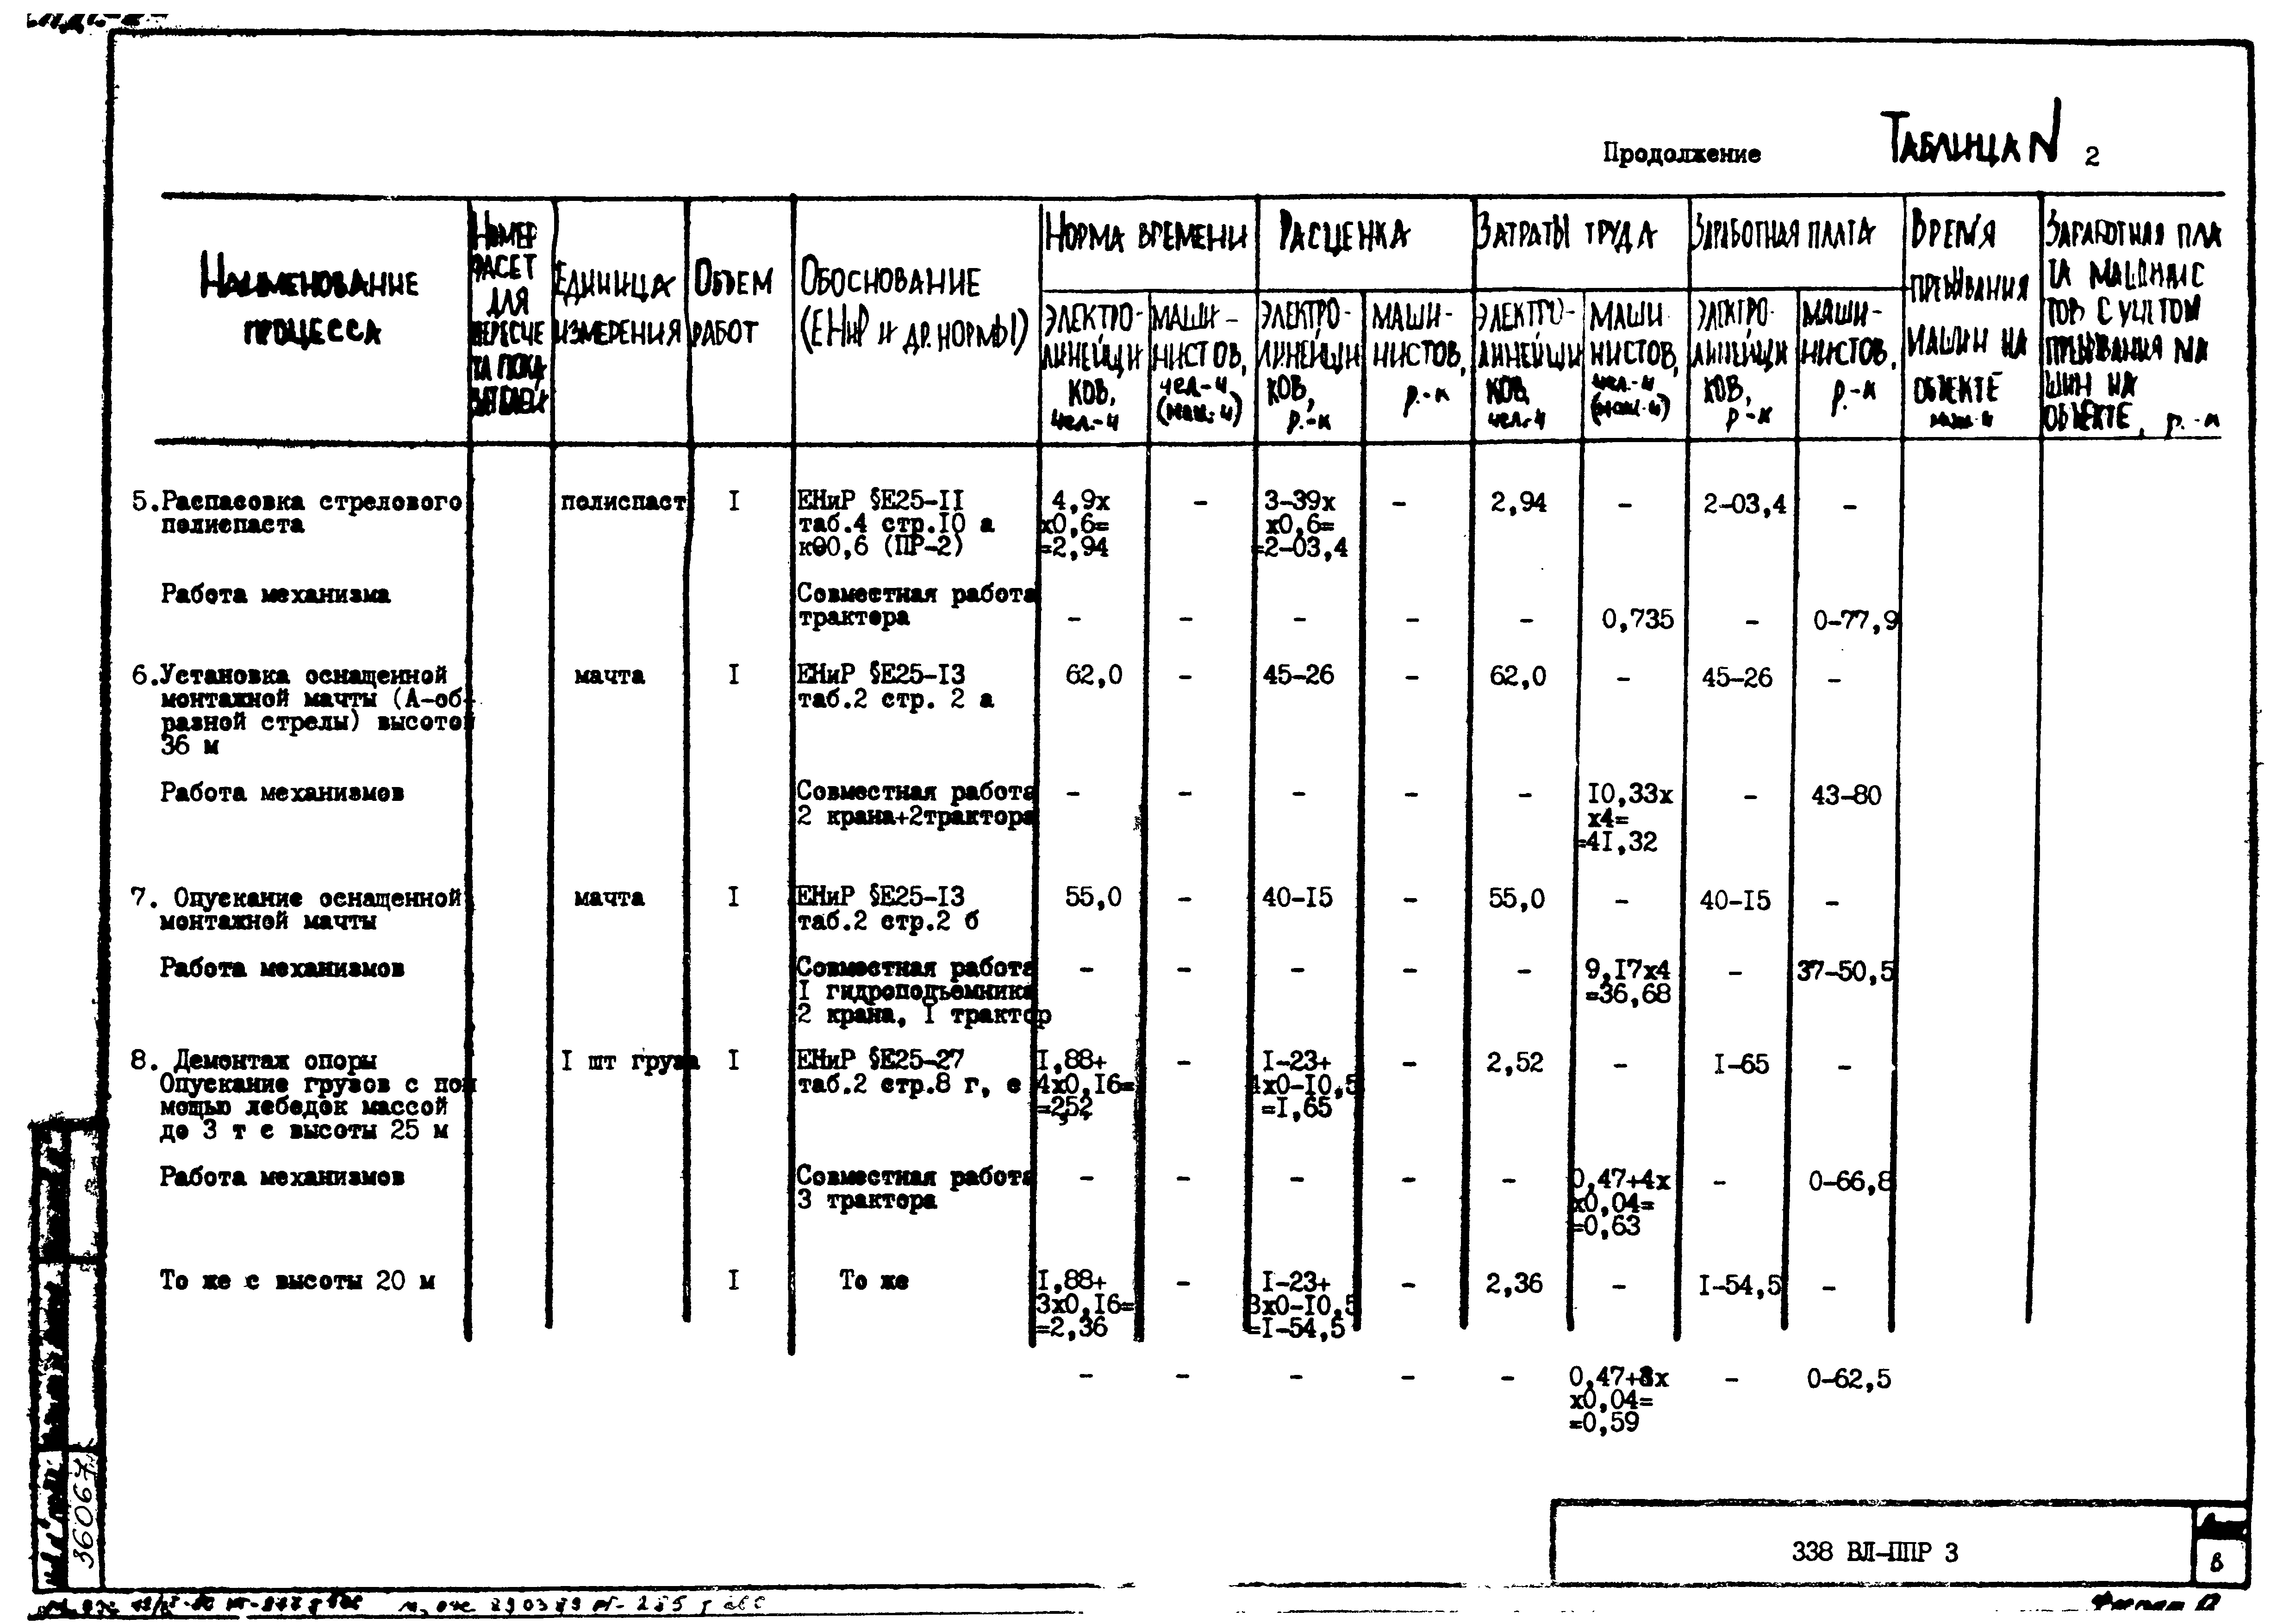 Продолжение ТАБЛИЦА N 2
НАИМЕНОВАНИЕ ПРОЦЕССА
НОМЕР ФАСЕТ ДЛЯ ПЕРЕСЧЕ ТА ПОКА ЗАТЕЛЕЙ
ЕДИНИЦА ИЗМЕРЕНИЯ
ОБЪЕМ РАБОТ
ОБОСНОВАНИЕ (ЕНиР И ДР. НОРМЫ)
НОРМА ВРЕМЕНИ
РАСЦЕНКА
ЗАТРАТЫ ТРУДА
ЗАРАБОТНАЯ ПЛАТА
ВРЕМЯ ПРЕБЫВАНИЯ МАШИН НА ОБЪЕКТЕ маш.-ч
ЗАРАБОТНАЯ ПЛА ТА МАШИНИС ТОВ С УЧЕТОМ ПРЕБЫВАНИЯ МА ШИН НА ОБЪЕКТЕ, р.-к
ЭЛЕКТРО- ЛИНЕЙЩИ КОВ, чел.-ч
МАШИ- НИСТОВ, чел-ч (маш.-ч)
ЭЛЕКТРО- ЛИНЕЙЩИ КОВ, р.-к
МАШИ- НИСТОВ, р.-к
ЭЛЕКТРО- ЛИНЕЙЩИ КОВ чел-ч
МАШИ НИСТОВ, чел.-ч (маш-ч)
ЭЛЕКТРО- ЛИНЕЙЩИ КОВ, р-к
МАШИ- НИСТОВ, р.-к
5.Распасовка стрелового полиспаст I ЕНиР §Е25-II 4,9х - 3-39х - 2,94 - 2-03,4 -
полиспаста таб.4 стр.IO а х0,6= х0,6=
к00,6 (ПР-2) =2,94 =2-03,4
Работа механизма Совместная работа
трактора - - - - - 0,735 - 0-77,9
6.Установка оснащенной мачта I ЕНиР §Е25-I3 62,0 - 45-26 - 62,0 - 45-26 -
монтажной мачты (А-об- таб.2 стр. 2 а
разной стрелы) высотой
36 м
Работа механизмов Совместная работа - - - - - I0,33х - 43-80
2 крана+2трактора х4=
=4I,32
7. Опускание оснащенной мачта I ЕНиР §Е25-I3 55,0 - 40-I5 - 55,0 - 40-I5 -
монтажной мачты таб.2 стр.2 б
Работа механизмов Совместная работа - - - - - 9,I7х4 - 37-50,5
I гидроподъемника =36,68
2 крана, I трактор
8. Демонтаж опоры I шт груза I ЕНиР §Е25-27 I,88+ - I-23+ - 2,52 - I-65 -
Опускание грузов с пом таб.2 стр.8 г, е 4х0,I6= 4х0-I0,5
мощью лебедок массой =2,52 =I,65
до 3 т с высоты 25 м
Работа механизмов Совместная работа - - - - - 0,47+4х - 0-66,8
3 трактора х0,04=
=0,63
То же с высоты 20 м I То же I,88+ - I-23+ - 2,36 - I-54,5 -
3х0,I6= 3х0-I0,5
=2,36 =I-54,5
- - - - - 0,47+3х - 0-62,5
х0,04=
=0,59
36067
338 ВЛ-ППР 3
8